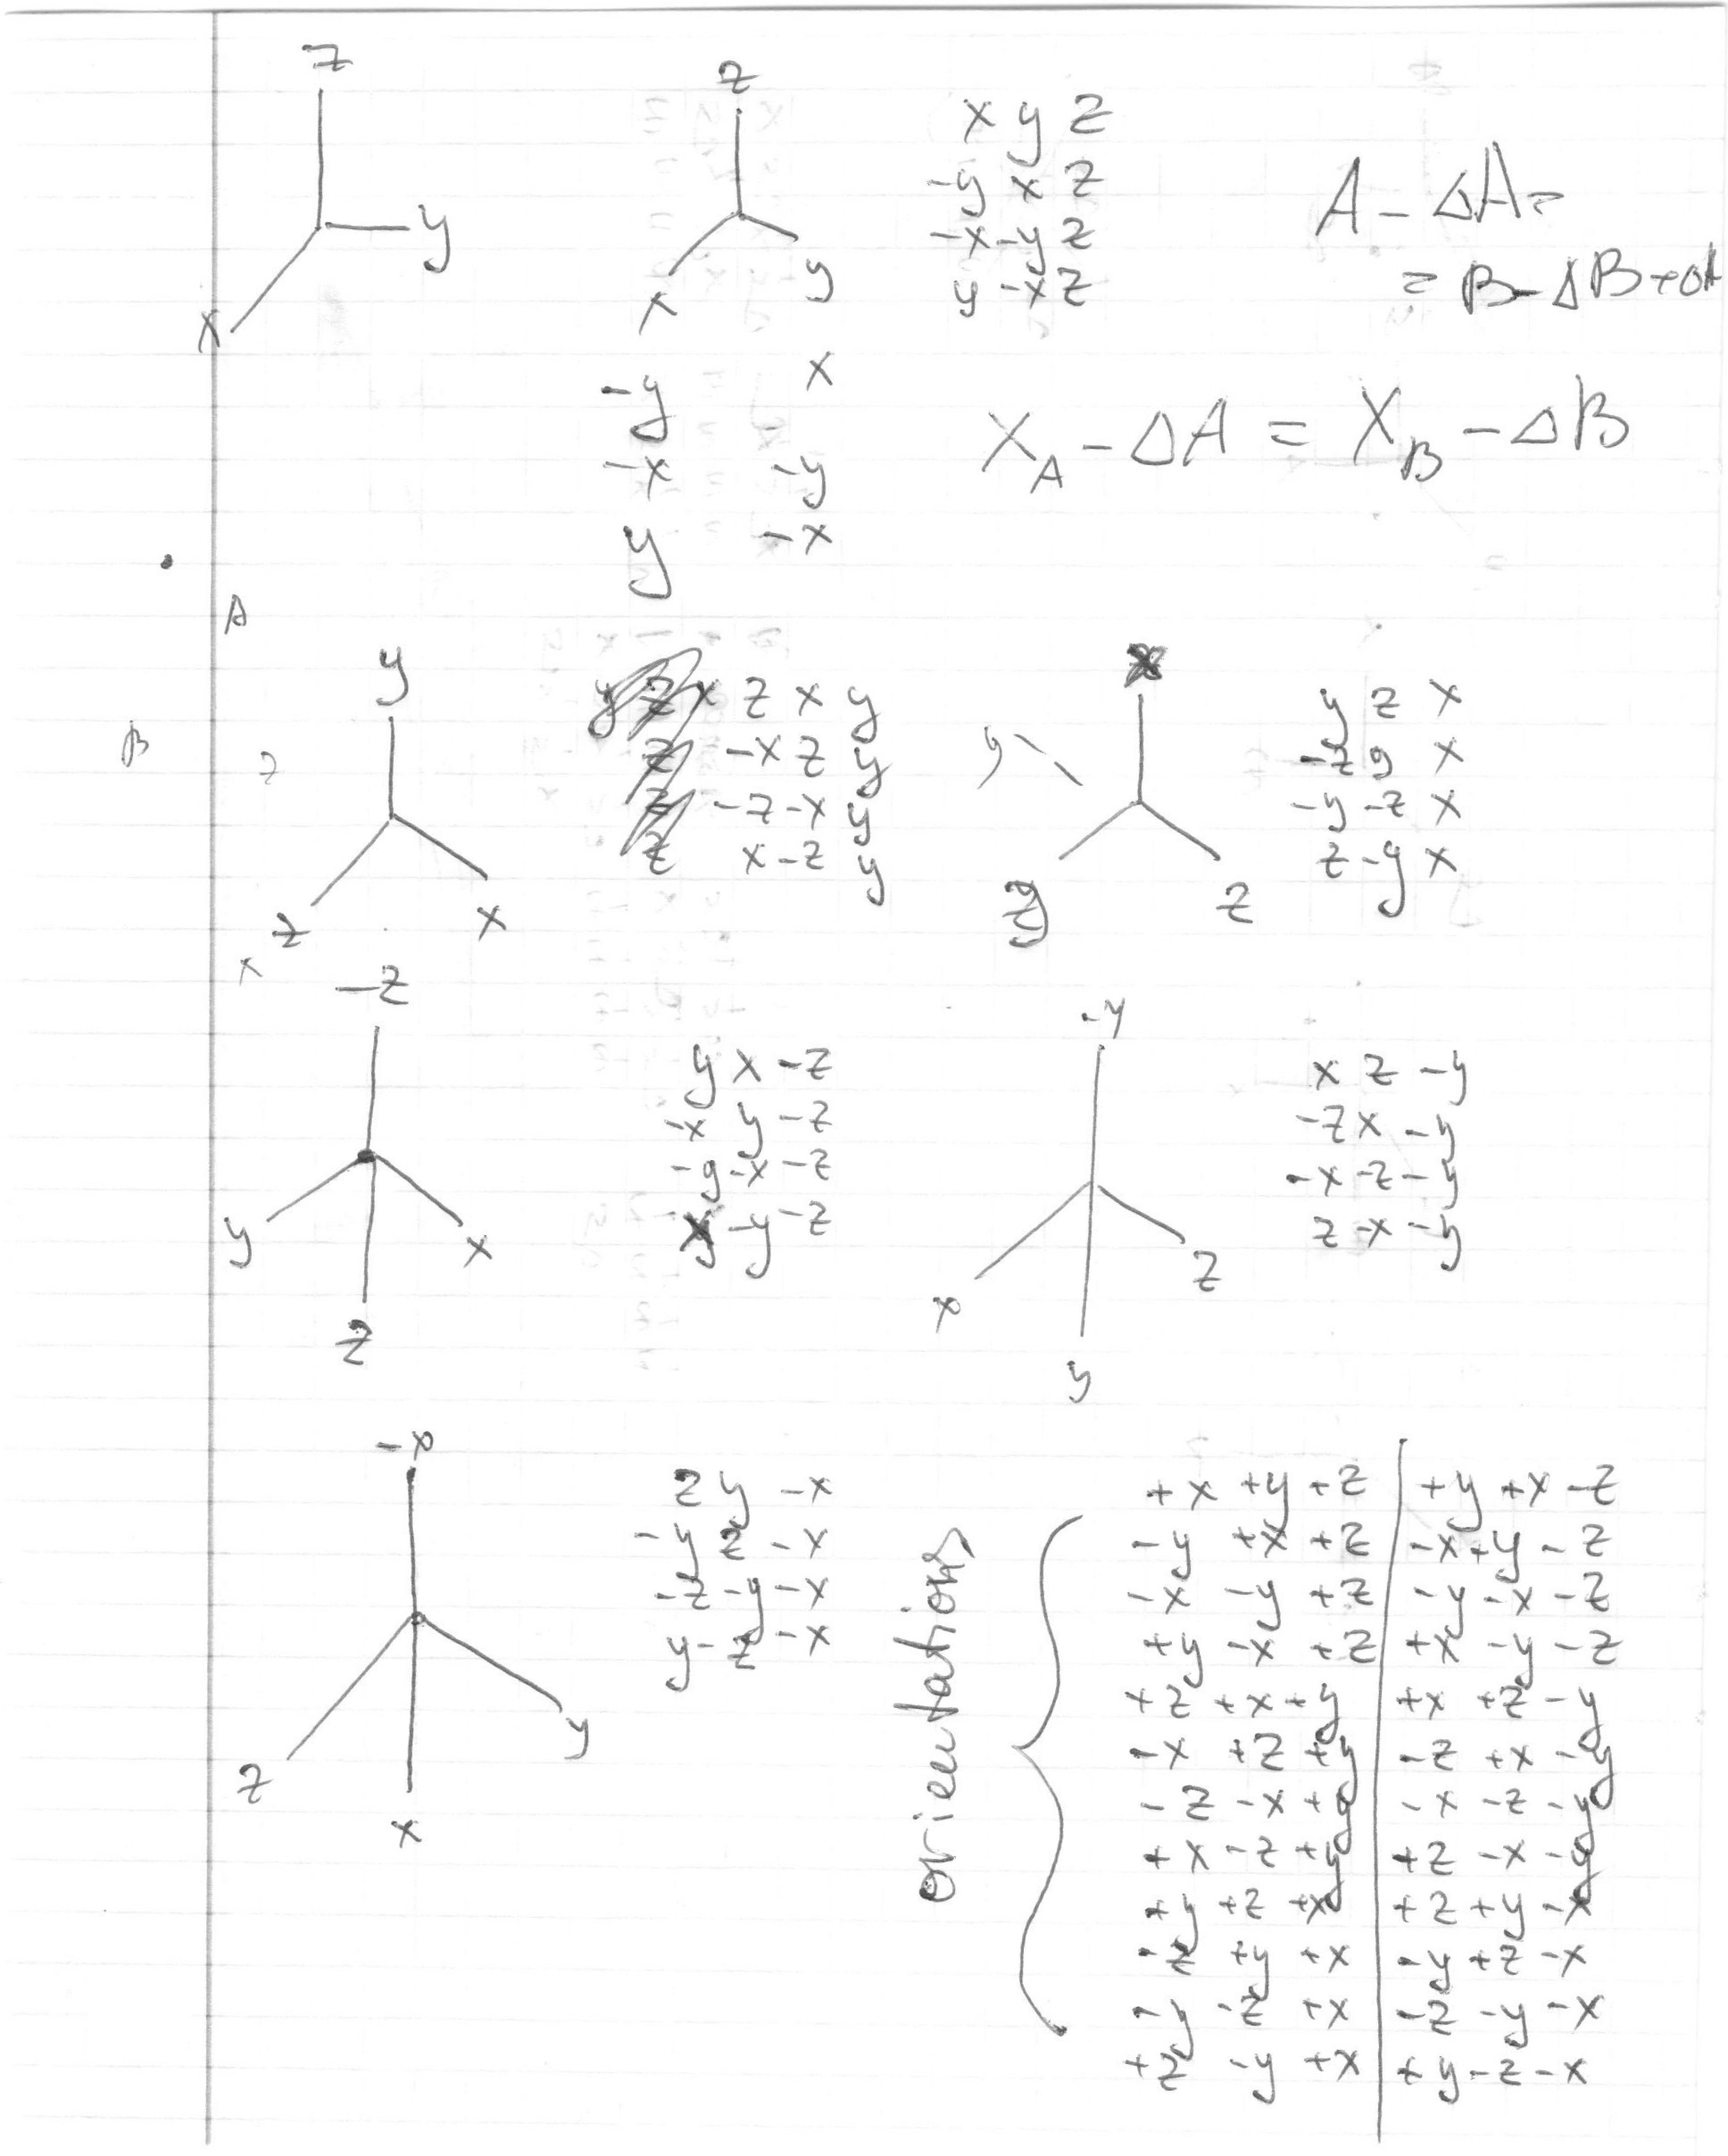 z
y
x
z
x
y
x y z
-y x z
-x -y z
y -x z
A - ΔA =
= B - ΔB + ΔA
-y x
-x -y
y -x
X_A - ΔA = X_B - ΔB
A
B
z
y
z
x
x
z x y
-x z y
-z -x y
x -z y
x
y
y
z
y z x
-z y x
-y -z x
z -y x
-z
y
x
z
y x -z
-x y -z
-y -x -z
x -y -z
-y
x
z
y
x z -y
-z x -y
-x -z -y
z -x -y
-x
z
y
x
z y -x
-y z -x
-z -y -x
y -z -x
orientations
+x +y +z | +y +x -z
-y +x +z | -x +y -z
-x -y +z | -y -x -z
+y -x +z | +x -y -z
+z +x +y | +x +z -y
-x +z +y | -z +x -y
-z -x +y | -x -z -y
+x -z +y | +z -x -y
+y +z +x | +z +y -x
-z +y +x | -y +z -x
-y -z +x | -z -y -x
+z -y +x | +y -z -x